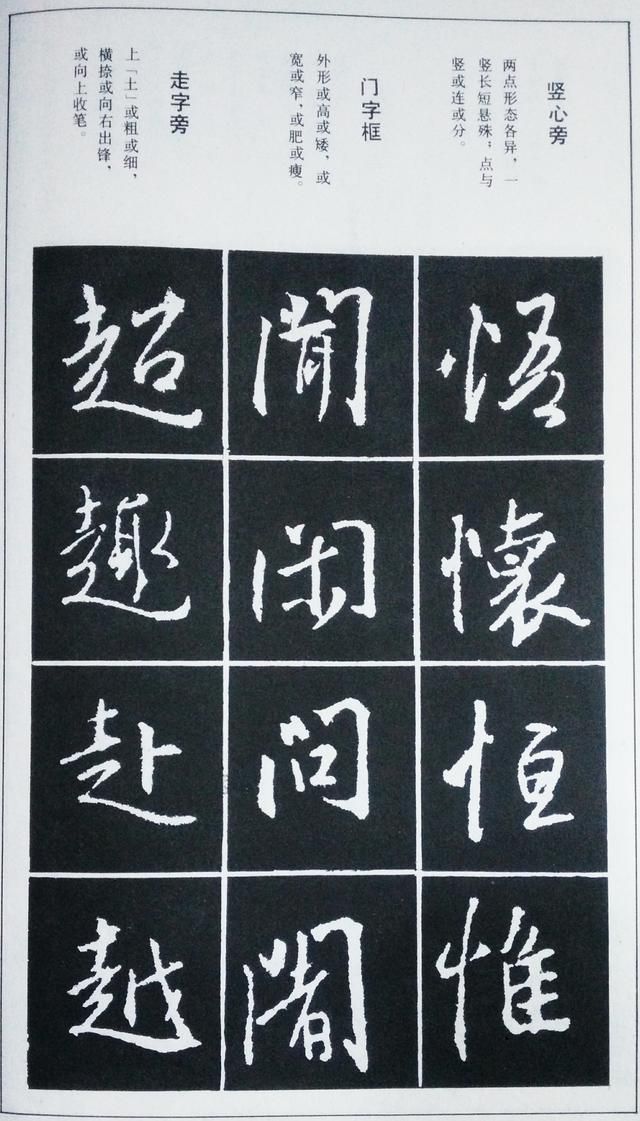 竖心旁
两点形态各异，一
竖长短悬殊；点与
竖或连或分。
悟
懷
恒
惟
门字框
外形或高或矮，或
宽或窄，或肥或瘦。
闻
闲
问
阇
走字旁
上「土」或粗或细，
横捺或向右出锋，
或向上收笔。
超
趣
赴
越